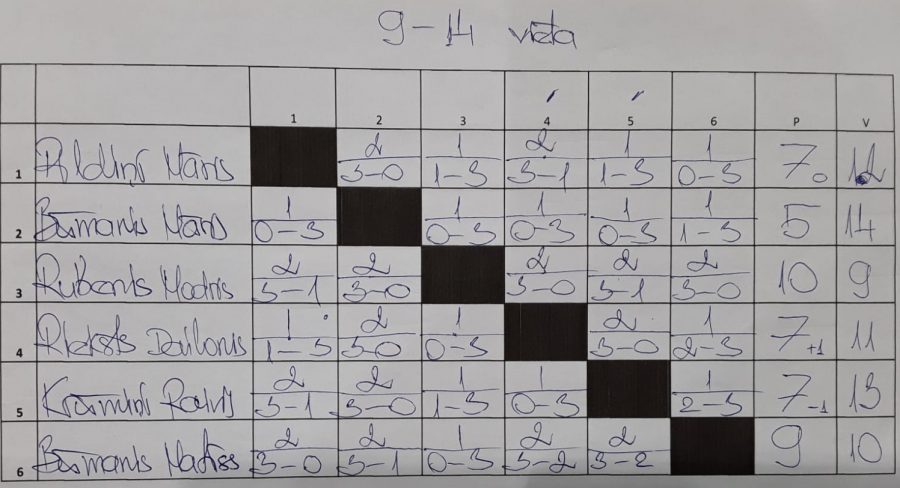 9-14 vieta
1 2 3 4 5 6 P V
1 Māris 2 3-0 1 1-3 2 3-1 1 1-3 1 0-3 7 0 12
2 Māris 1 0-3 1 0-3 1 0-3 1 0-3 1 1-3 5 14
3 Rubenis 2 3-1 2 3-0 2 3-0 2 3-1 2 3-0 10 9
4 1 1-3 2 3-0 1 0-3 2 3-0 1 2-3 7 +1 11
5 2 3-1 2 3-0 1 1-3 1 0-3 1 2-3 7 -1 13
6 2 3-0 2 3-1 1 0-3 2 3-2 2 3-2 9 10